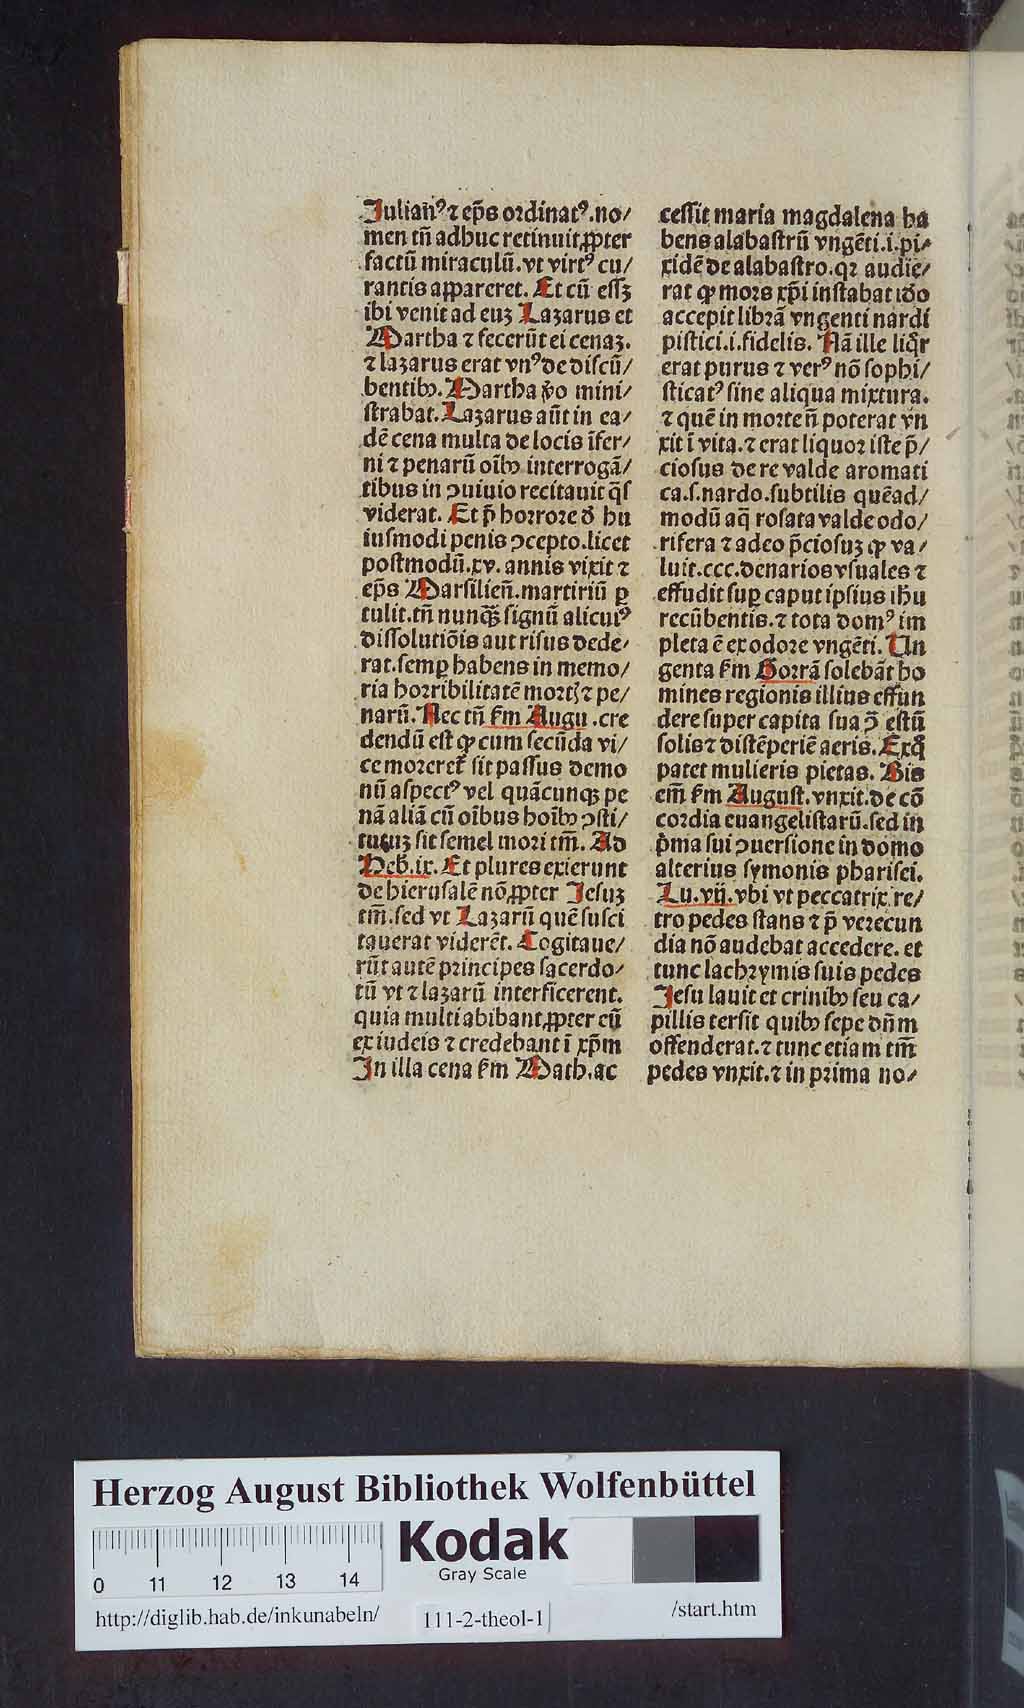 Julianꝰ ⁊ ep̄s ordinatꝰ.no/
men tn̄ adhuc retinuit ꝓpter
factū miraculū.vt virtꝰ cu/
rantis appareret. Et cū essꝫ
ibi venit ad euꝫ Lazarus et
Martha ⁊ fecerūt ei cenaꝫ.
⁊ lazarus erat vnꝰ de discū/
bentibꝰ. Martha v̄o mini/
strabat. Lazarus aūt in ea/
dē cena multa de locis īfer/
ni ⁊ penarū oībꝰ interrogā/
tibus in ꝯuiuio recitauit q̄s
viderat. Et p̄ horrore ð hu
iusmodi penis ꝯcepto.licet
postmodū.xv. annis vixit ⁊
ep̄s Marsilien̄.martiriū ꝑ
tulit.tn̄ nunqꝫ signū alicuiꝰ
dissolutiōis aut risus dede/
rat.semꝑ habens in memo/
ria horribilitatē mortꝭ ⁊ pe/
narū. Nec tn̄ ẜm Augu.cre
dendū est ꝙ cum secūda vi/
ce moreret᷑ sit passus demo
nū aspectꝰ vel quācunqꝫ pe
nā aliā cū oībus hoībꝰ ꝯsti/
tutuꝫ sit semel mori tm̄. Ad
Heb̄.ix. Et plures exierunt
de hierusalē nō ꝓpter Jesuꝫ
tm̄.sed vt Lazarū quē susci
tauerat viderēt. Cogitaue/
rūt autē principes sacerdo/
tū vt ⁊ lazarū interficerent.
quia multi abibant ꝓpter eū
ex iudeis ⁊ credebant ī xp̄m
In illa cena ẜm Math.ac
cessit maria magdalena ha
bens alabastrū vngēti.i.pi/
xidē de alabastro.qꝛ audie/
rat ꝙ mors xp̄i instabat iðo
accepit librā vngenti nardi
pistici.i.fidelis. Nā ille liq̄r
erat purus ⁊ verꝰ nō sophi/
sticatꝰ sine aliqua mixtura.
⁊ quē in morte n̄ poterat vn
xit ī vita.⁊ erat liquor iste p̄/
ciosus de re valde aromati
ca.s.nardo.subtilis quēad/
modū aq̄ rosata valde odo/
rifera ⁊ adeo p̄ciosuꝫ ꝙ va/
luit.ccc.denarios vsuales ⁊
effudit suꝑ caput ipsius ihū
recūbentis.⁊ tota domꝰ im
pleta ē ex odore vngēti. Un
genta ẜm Gorrā solebāt ho
mines regionis illius effun
dere super capita sua ꝯ̄ estū
solis ⁊ distēperiē aeris. Ex q̄
patet mulieris pietas. Bis
em̄ ẜm August.vnxit.de cō
cordia euangelistarū.sed in
pͥma sui ꝯuersione in domo
alterius symonis pharisei.
Lu.vij.vbi vt peccatrix re/
tro pedes stans ⁊ p̄ verecun
dia nō audebat accedere. et
tunc lachrymis suis pedes
Jesu lauit et crinibꝰ seu ca/
pillis tersit quibꝰ sepe dn̄m
offenderat.⁊ tunc etiam tm̄
pedes vnxit.⁊ in prima no/
Herzog August Bibliothek Wolfenbüttel
Kodak
Gray Scale
0 11 12 13 14
http://diglib.hab.de/inkunabeln/
111-2-theol-1
/start.htm